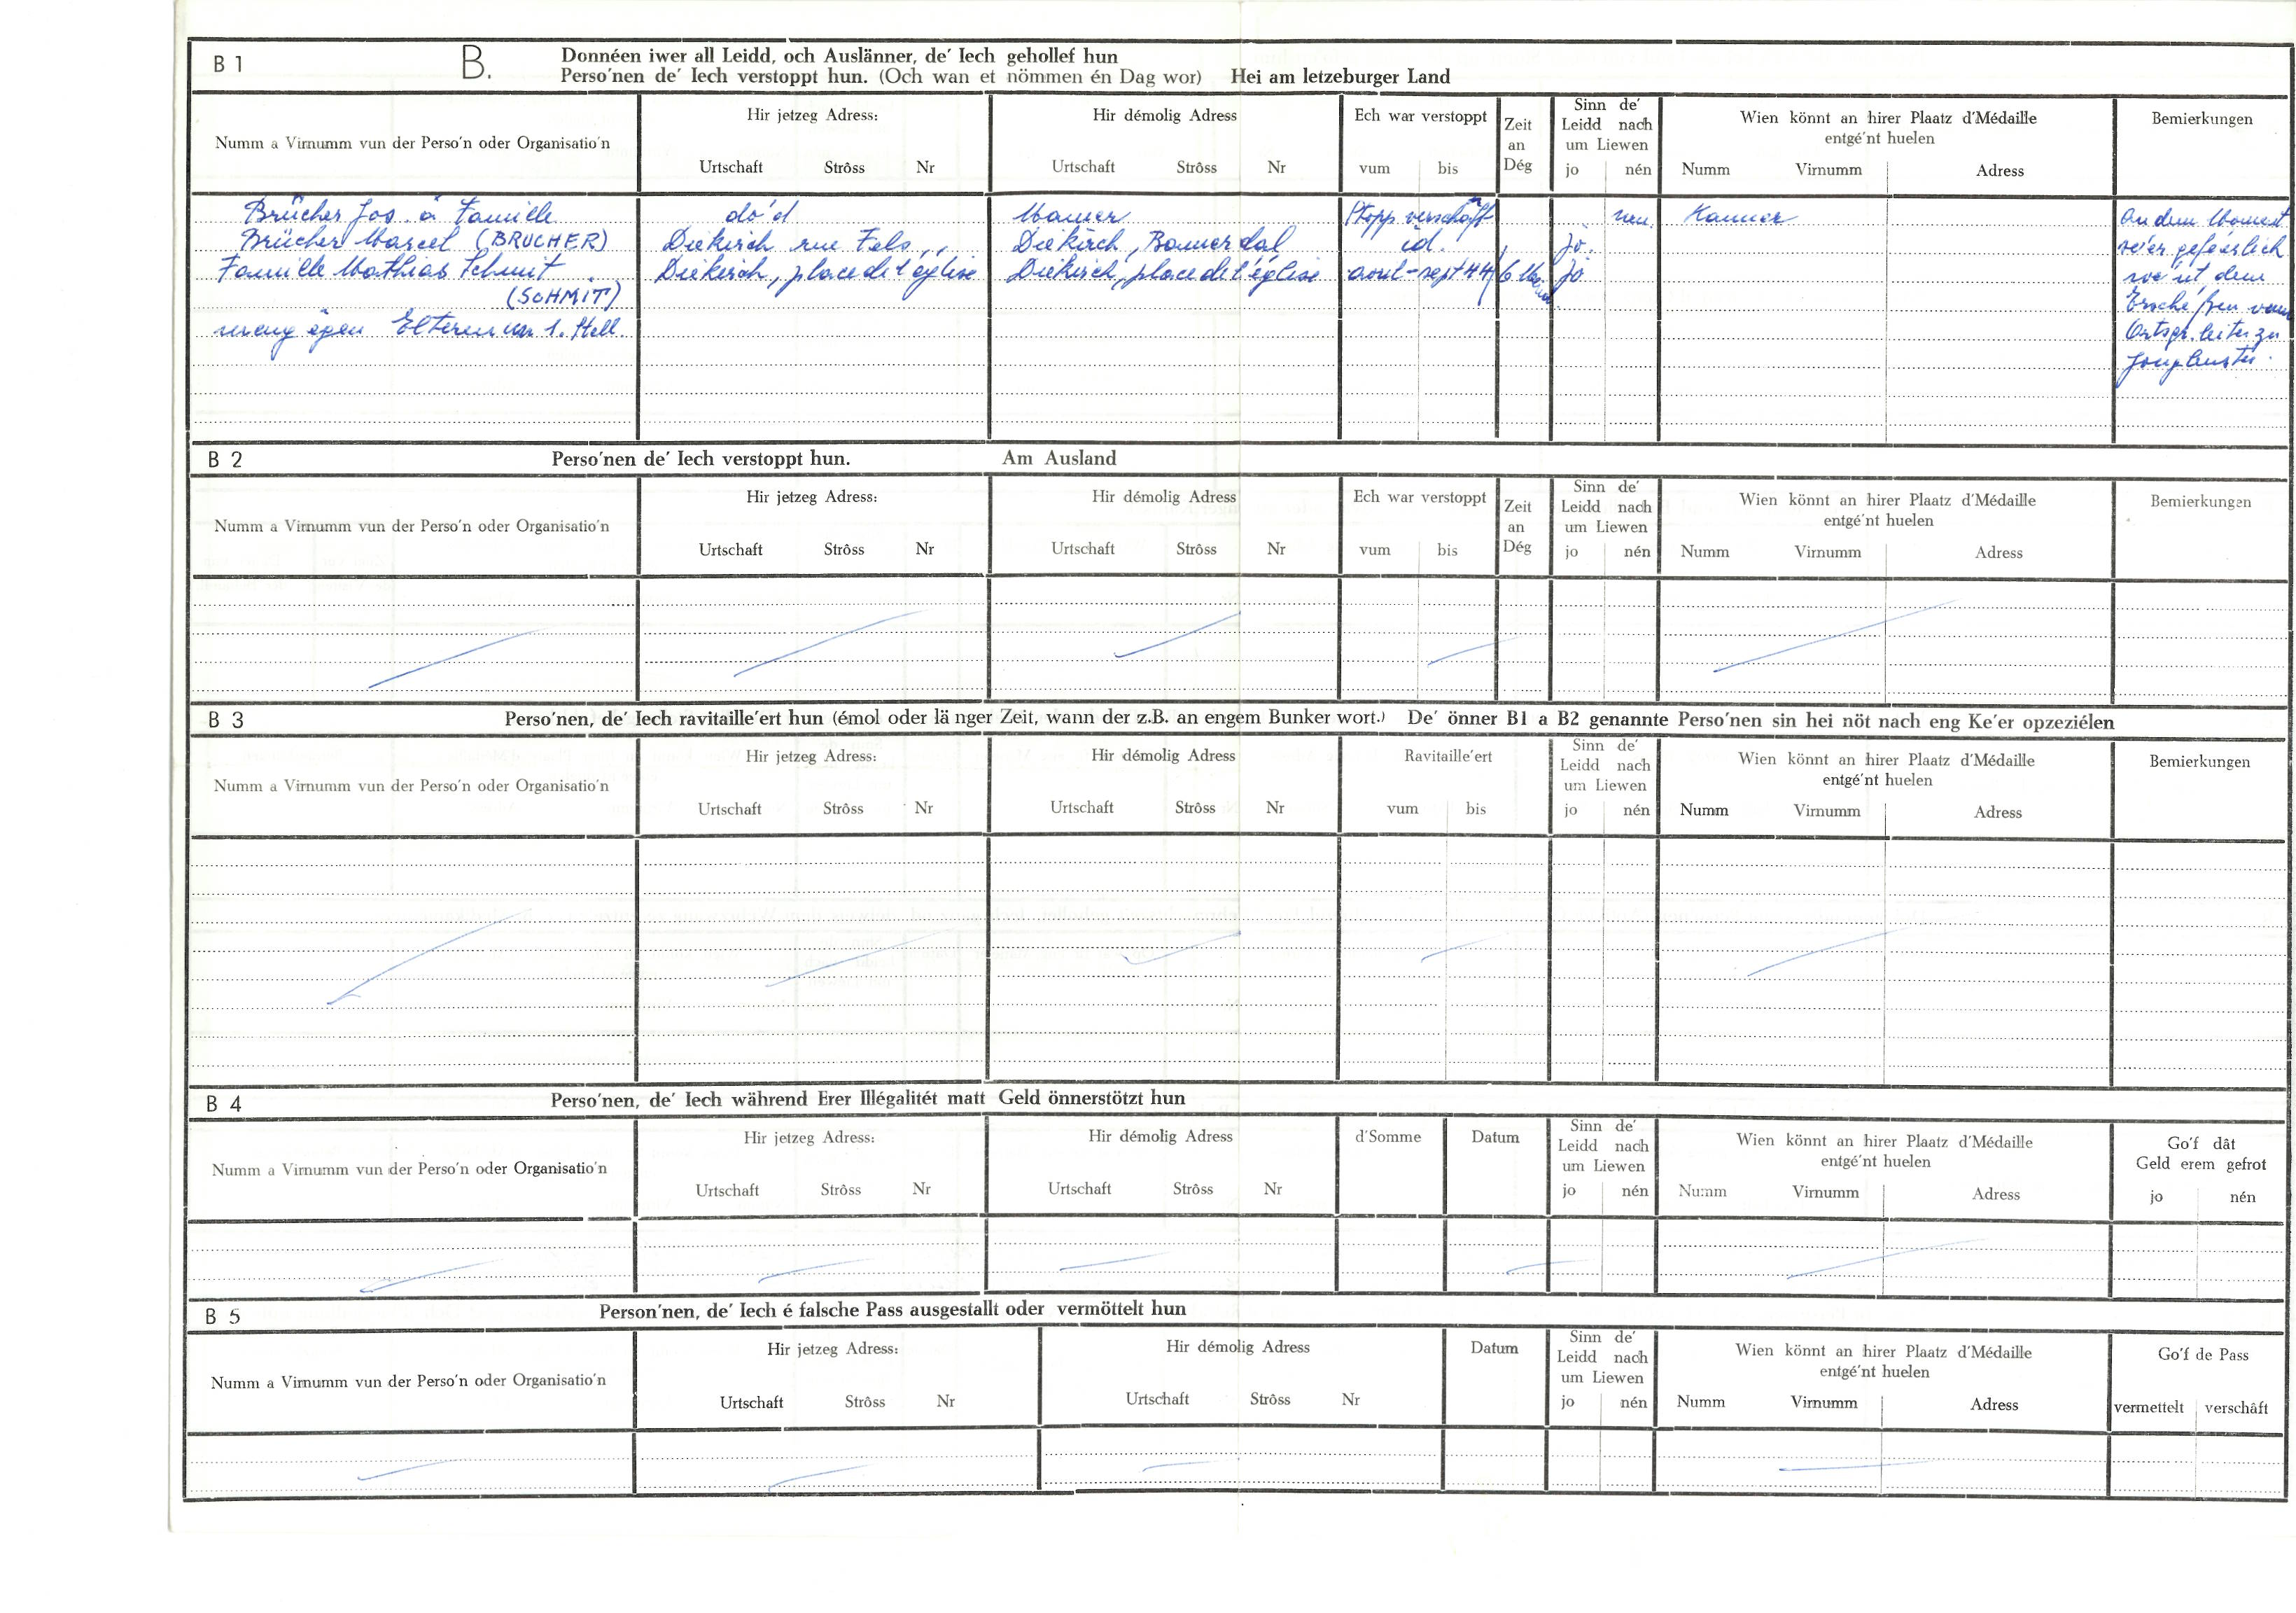 B 1 B. Donnéen iwer all Leidd, och Auslänner, de' Iech gehollef hun
Perso'nen de' Iech verstoppt hun. (Och wan et nömmen én Dag wor) Hei am letzeburger Land
Numm a Virnumm vun der Perso'n oder Organisatio'n
Hir jetzeg Adress:
Urtschaft Strôss Nr
Hir démolig Adress
Urtschaft Strôss Nr
Ech war verstoppt
vum bis
Zeit
an
Dég
Sinn de'
Leidd nach
um Liewen
jo nén
Wien könnt an hirer Plaatz d'Médaille
entgé'nt huelen
Numm Virnumm Adress
Bemierkungen
Brücher Jos. a Famille do'd Mamer Stopp verschaft nen Kanner
Brücher Marcel (BRÜCHER) Diekirch rue Fels Diekirch, Bamerdal id. Jo.
Famille Mathias Schmit Diekirch, place de l'église Diekirch, place de l'église aout-sept 44 Jo
(SCHMIT)
Elteren un 1. Stell.
An dem Moment
se'er gefe'erlich
we'nt dem
Ersche'ssen vum
Ortsgr. leiter zu
Jonglënster.
B 2 Perso'nen de' Iech verstoppt hun. Am Ausland
Numm a Virnumm vun der Perso'n oder Organisatio'n
Hir jetzeg Adress:
Urtschaft Strôss Nr
Hir démolig Adress
Urtschaft Strôss Nr
Ech war verstoppt
vum bis
Zeit
an
Dég
Sinn de'
Leidd nach
um Liewen
jo nén
Wien könnt an hirer Plaatz d'Médaille
entgé'nt huelen
Numm Virnumm Adress
Bemierkungen
B 3 Perso'nen, de' Iech ravitaille'ert hun (émol oder länger Zeit, wann der z.B. an engem Bunker wort.) De' önner B1 a B2 genannte Perso'nen sin hei nöt nach eng Ke'er opzeziélen
Numm a Virnumm vun der Perso'n oder Organisatio'n
Hir jetzeg Adress:
Urtschaft Strôss Nr
Hir démolig Adress
Urtschaft Strôss Nr
Ravitaille'ert
vum bis
Sinn de'
Leidd nach
um Liewen
jo nén
Wien könnt an hirer Plaatz d'Médaille
entgé'nt huelen
Numm Virnumm Adress
Bemierkungen
B 4 Perso'nen, de' Iech während Erer Illégalitét matt Geld önnerstötzt hun
Numm a Virnumm vun der Perso'n oder Organisatio'n
Hir jetzeg Adress:
Urtschaft Strôss Nr
Hir démolig Adress
Urtschaft Strôss Nr
d'Somme
Datum
Sinn de'
Leidd nach
um Liewen
jo nén
Wien könnt an hirer Plaatz d'Médaille
entgé'nt huelen
Numm Virnumm Adress
Go'f dât
Geld erem gefrot
jo nén
B 5 Person'nen, de' Iech é falsche Pass ausgestallt oder vermöttelt hun
Numm a Virnumm vun der Perso'n oder Organisatio'n
Hir jetzeg Adress:
Urtschaft Strôss Nr
Hir démolig Adress
Urtschaft Strôss Nr
Datum
Sinn de'
Leidd nach
um Liewen
jo nén
Wien könnt an hirer Plaatz d'Médaille
entgé'nt huelen
Numm Virnumm Adress
Go'f de Pass
vermettelt verschâft